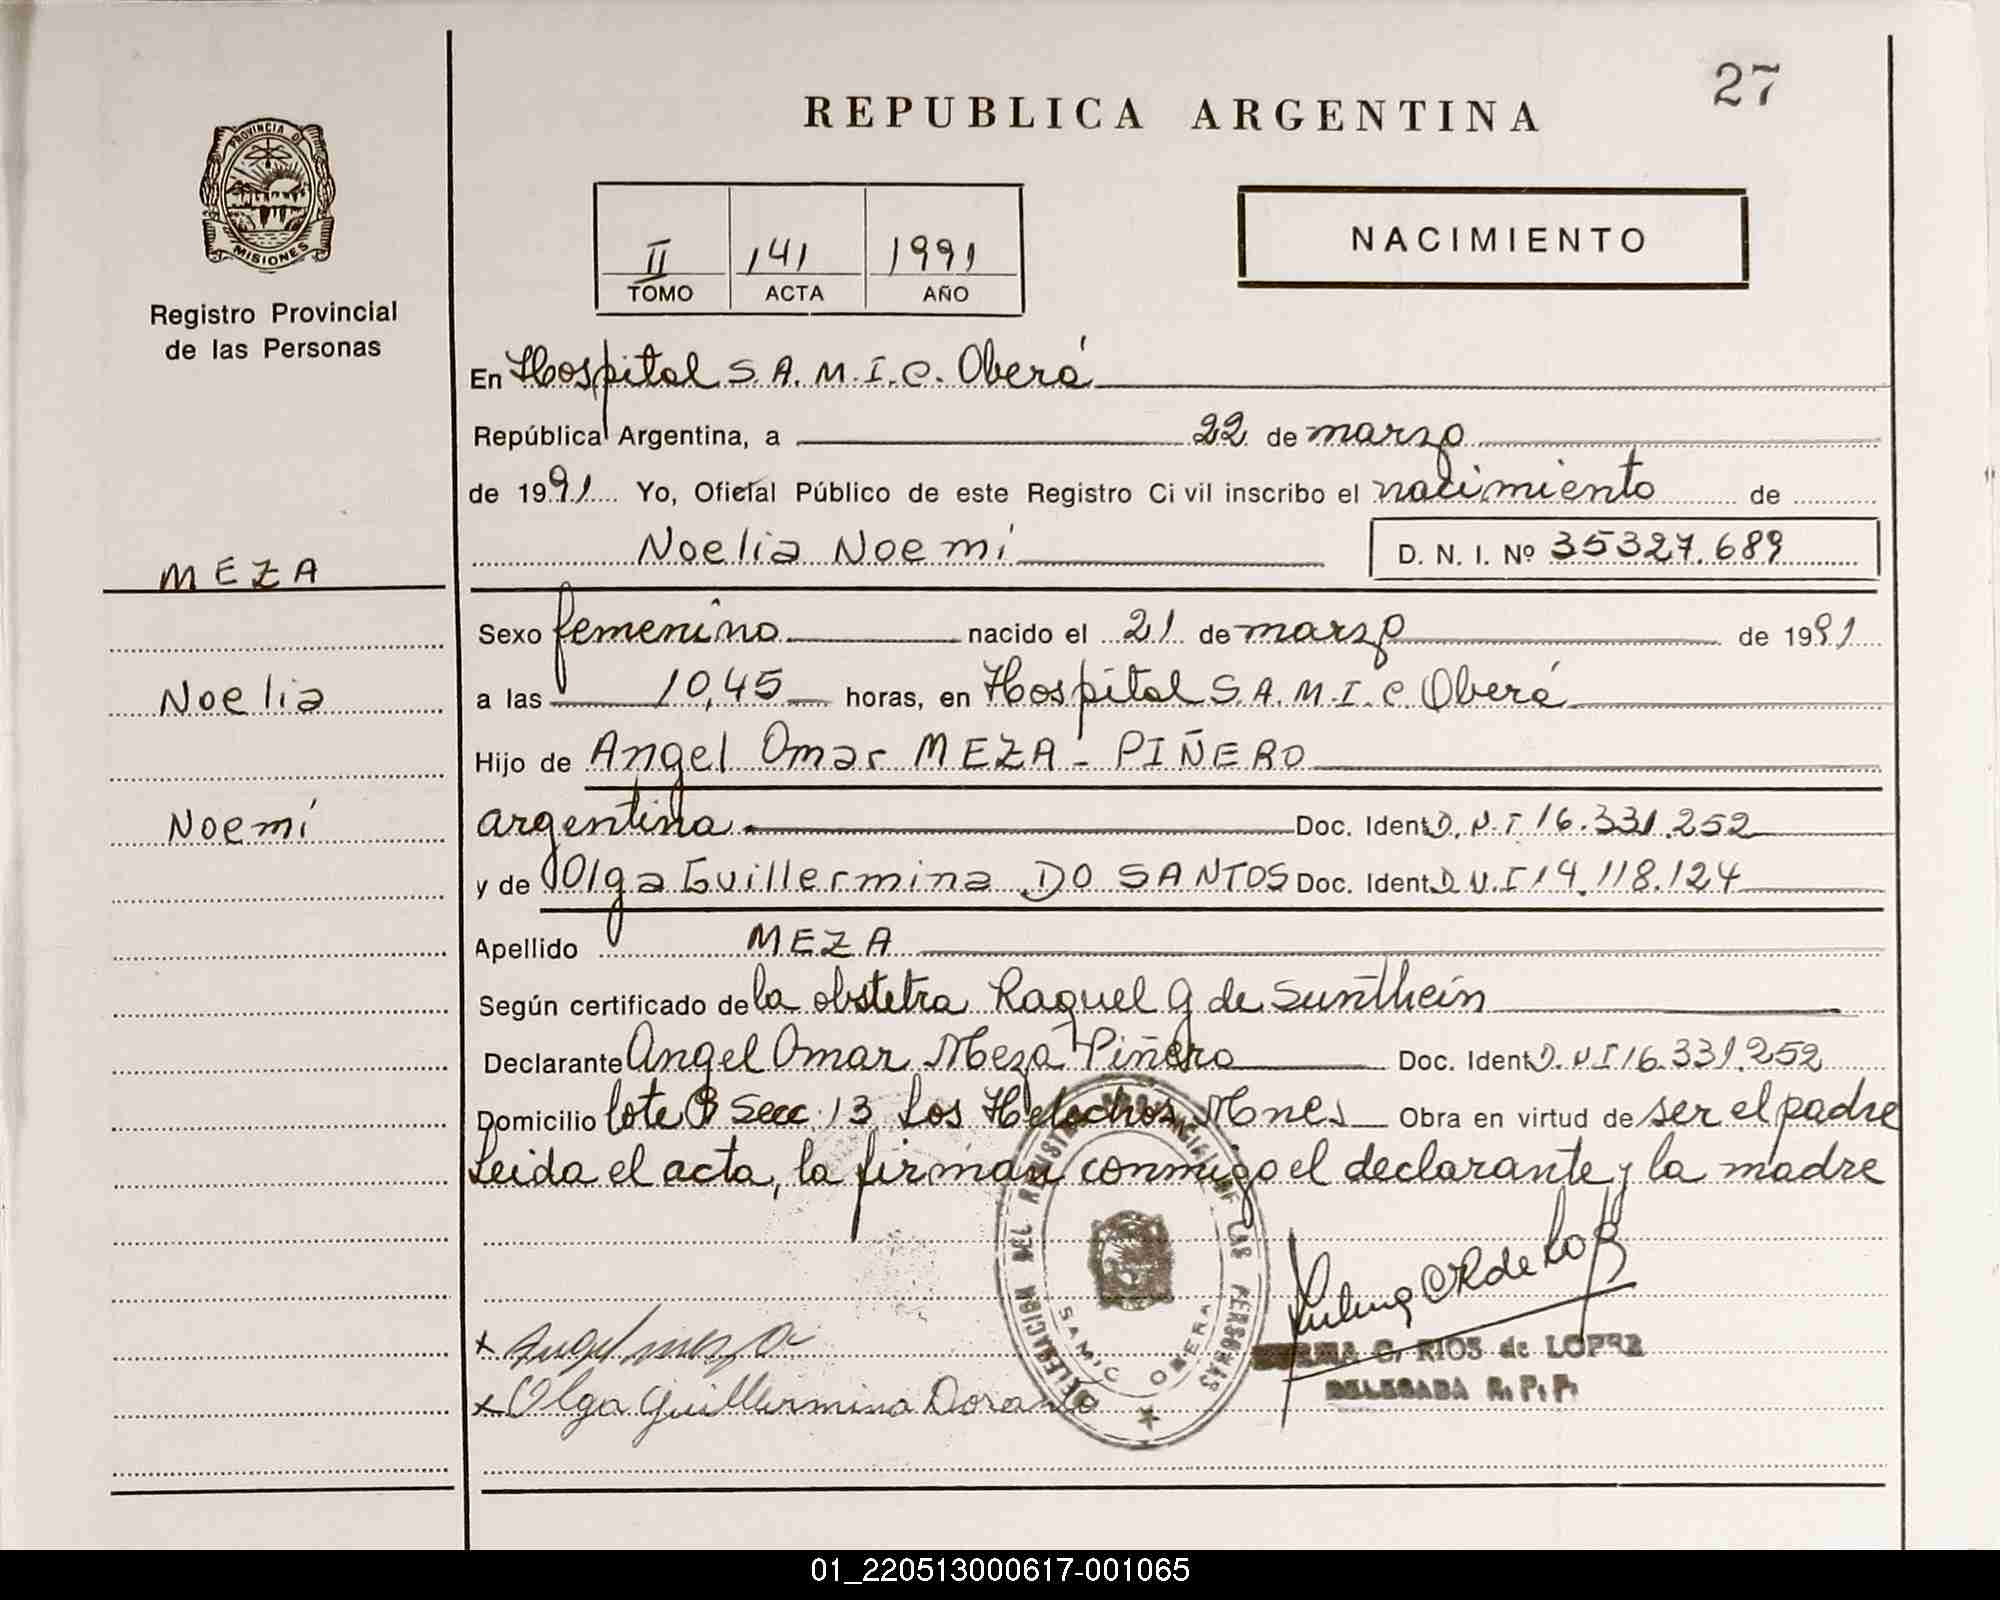 27
REPUBLICA ARGENTINA
PROVINCIA DE
MISIONES
Registro Provincial
de las Personas
II 141 1991
TOMO ACTA AÑO
NACIMIENTO
En Hospital S.A.M.I.C. Oberá
República Argentina, a 22 de marzo
de 1991 Yo, Oficial Público de este Registro Civil inscribo el nacimiento de
Noelia Noemí D. N. I. Nº 35327.689
MEZA
Sexo femenino nacido el 21 de marzo de 1991
Noelia
a las 10,45 horas, en Hospital S.A.M.I.C. Oberá
Hijo de Angel Omar MEZA - PIÑERO
Noemí
argentina Doc. Ident D.N.I 16.331.252
y de Olga Guillermina DO SANTOS Doc. Ident D.N.I 14.118.124
Apellido MEZA
Según certificado de la obstetra Raquel G de Sunthein
Declarante Angel Omar Meza Piñero Doc. Ident D.N.I 16.331.252
Domicilio lote 8 Secc 13 Los Helechos Mnes Obra en virtud de ser el padre
Leida el acta, la firman conmigo el declarante y la madre
DELEGACION DEL REGISTRO PROVINCIAL DE LAS PERSONAS
SAMIC OBERA
x Angel meza
C. RIOS de LOPEZ
DELEGADA R. P. P.
x Olga Guillermina Dosanto
01_220513000617-001065